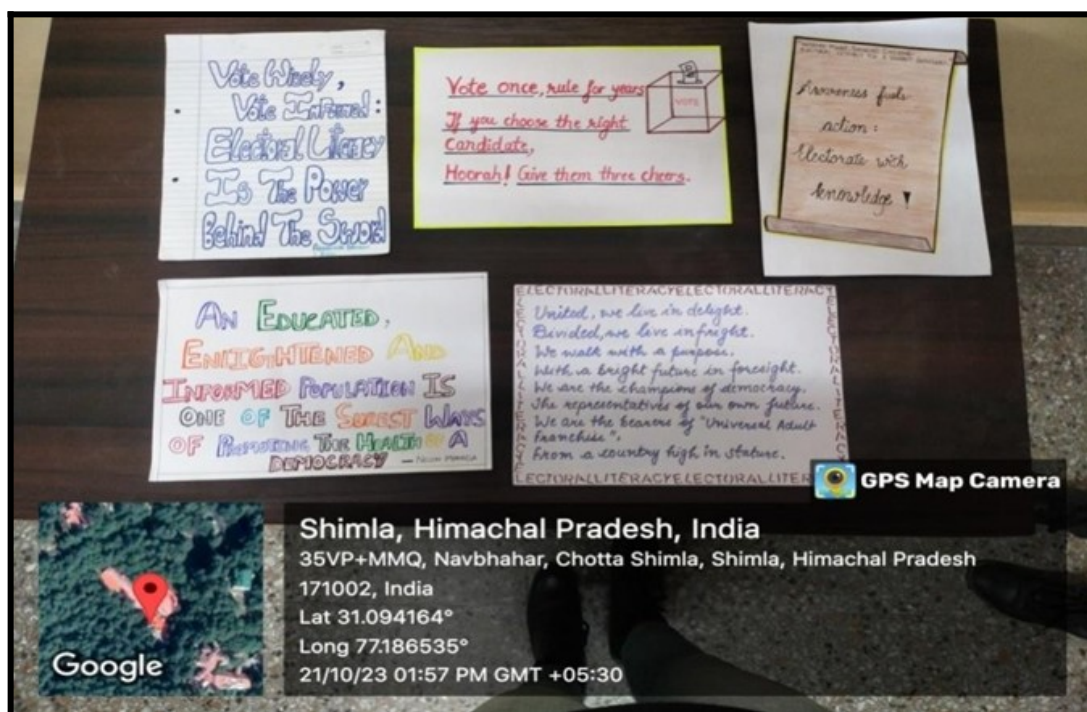 Vote Wisely,
Vote Informed:
Electoral Literacy
Is The Power
Behind The Sword
Vote once, rule for years
If you choose the right
Candidate,
Hoorah! Give them three cheers.
VOTE
Awareness fuels
action:
Electorate with
knowledge
AN EDUCATED,
ENLIGHTENED AND
INFORMED POPULATION IS
ONE OF THE SUREST WAYS
OF PROMOTING THE HEALTH OF A
DEMOCRACY
ELECTORALLITERACYELECTORALLITERACY
United, we live in delight.
Divided, we live in fright.
We walk with a purpose.
With a bright future in foresight.
We are the champions of democracy.
The representatives of our own future.
We are the bearers of "Universal Adult
Franchise",
From a country high in stature.
LECTORALLITERACYELECTORALLITER
GPS Map Camera
Shimla, Himachal Pradesh, India
35VP+MMQ, Navbhahar, Chotta Shimla, Shimla, Himachal Pradesh
171002, India
Lat 31.094164°
Long 77.186535°
21/10/23 01:57 PM GMT +05:30
Google